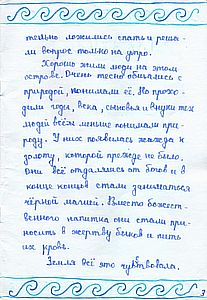 тельно ложились спать и реша-
ли вопрос только на утро.
Хорошо жили люди на этом
острове. Очень тесно общались с
природой, понимали её. Но прохо-
дили годы, века, сыновья и внуки тех
людей всём меньше понимали при-
роду. У них появилась жажда к
золоту, которой прежде не было.
Они всё отдалялись от богов и в
конце концов стали заниматься
чёрной магией. Вместо божест-
венного напитка они стали при-
носить в жертву быков и пить
их кровь.
Земля всё это чувствовала.
3